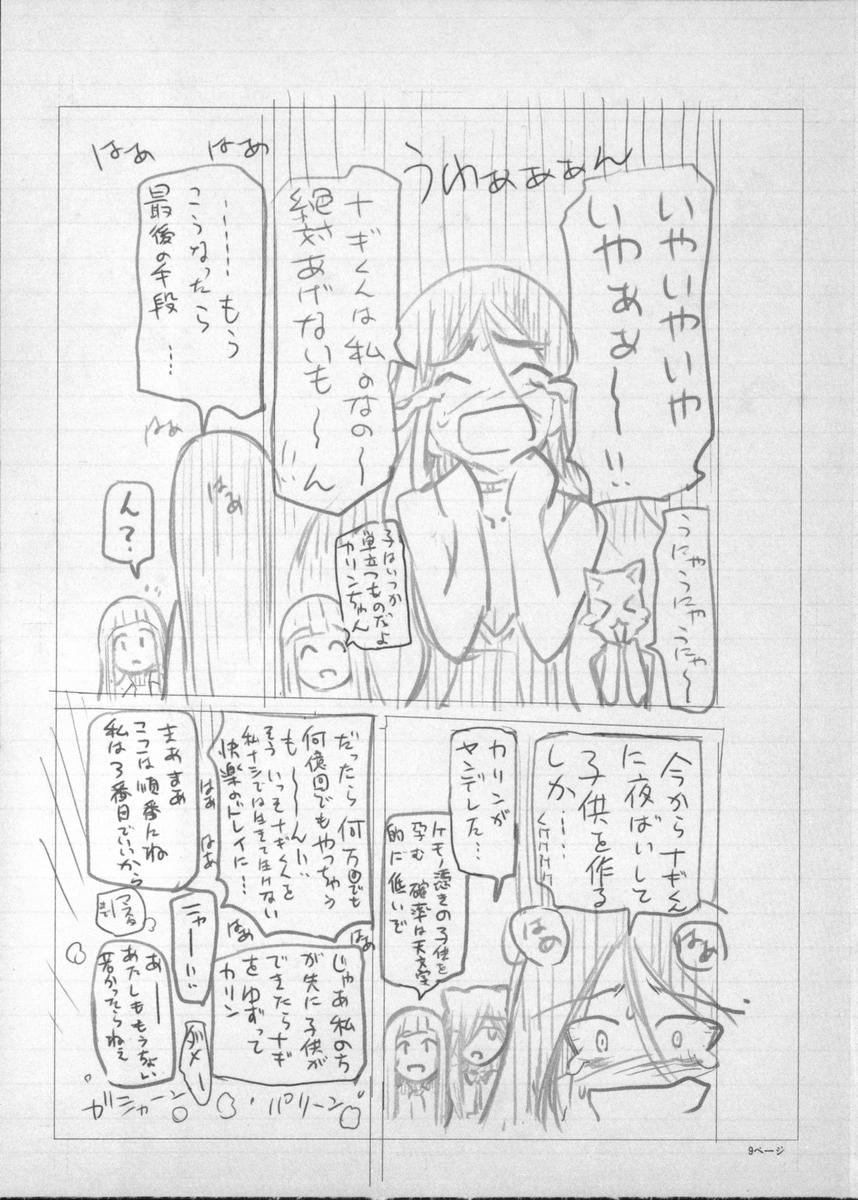 いやいやいや
いやぁぁ〜!!
うわぁぁぁん
うにゃうにゃうにゃ〜
ナギくんは私のなの〜
絶対あげないも〜ん!!
子はいつか
巣立つものだよ
カリンちゃん
はぁ
はぁ
……もう
こうなったら
最後の手段…
はぁ
はぁ
ん?
今からナギくん
に夜ばいして
子供を作る
しか…
ククククク
はぁ
はぁ
カリンが
ヤンデレした…
ケモノ憑きの子供を
孕む確率は天文学
的に低いで
だったら何万回でも
何億回でもやっちゃう
も〜ん!!
そういっそナギくんを
私ナシでは生きて生けない
快楽のドレイに…
はぁ
はぁ
はぁ
はぁ
じゃあ私のち
が先に子供が
できたらナギ
をゆずって
カリン
まぁまぁ
ここは順番にね
私は3番目でいいから
ニャー!!
ダメー
あー
あたしももうちょい
若かったらねぇ
ガシャーン
パリーン
9ページ